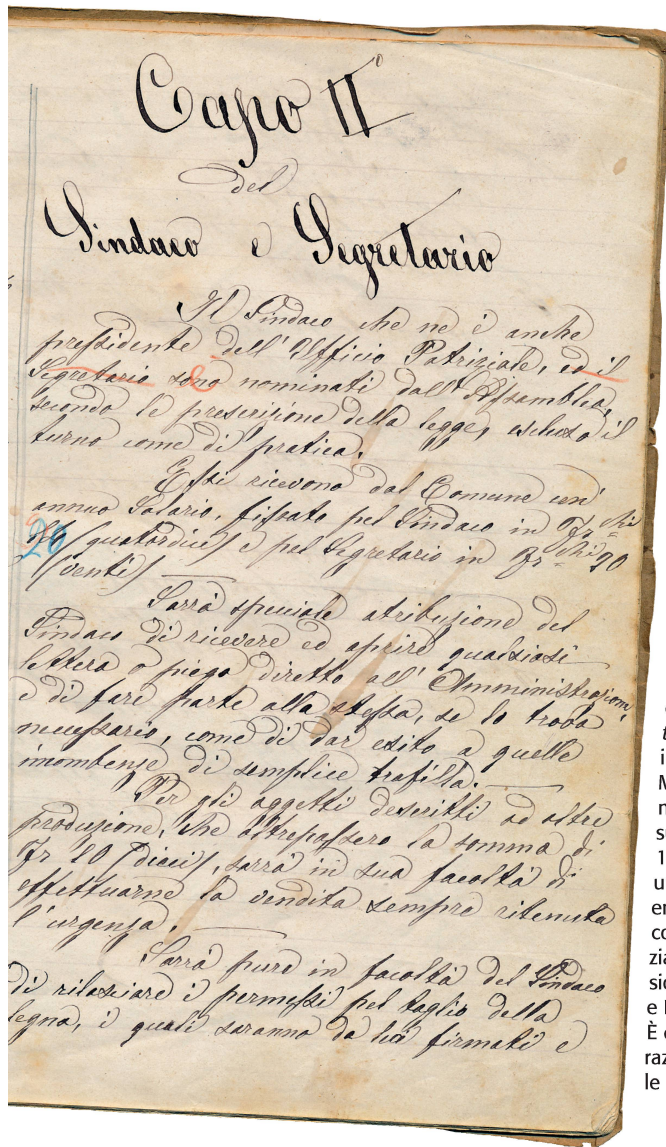 Capo IIº
del
Sindaco e Segretario
Il Sindaco che ne è anche
presidente dell' Ufficio Patriziale, ed il
Segretario sono nominati dall' Assamblea,
secondo le prescrizione della legge, escluso il
turno come di pratica.
Essi ricevono dal Comune un'
annuo Salario, fissato pel Sindaco in Fr.chi
20 (quatordici) e pel Segretario in Fr.chi 20
(venti)
Sarrà speciale atribuzione del
Sindaco di ricevere ed aprire qualsiasi
lettera o piego diretto all' Amministrazione
e di fare parte alla stessa, se lo trova
necessario, come di dar esito a quelle
incombense di semplice trafilla.
Per gli oggetti descritti ad altre
produzione, che oltrepassero la somma di
Fr 20 (dieci), sarrà in sua facoltà di
effettuarne la vendita sempre ritenuta
l'urgenza.
Sarrà pure in facoltà del Sindaco
di rilasciare i permessi pel taglio della
legna, i quali saranno da lui firmati e
t
i
M
n
su
1
u
en
co
zia
sio
e
È
raz
le